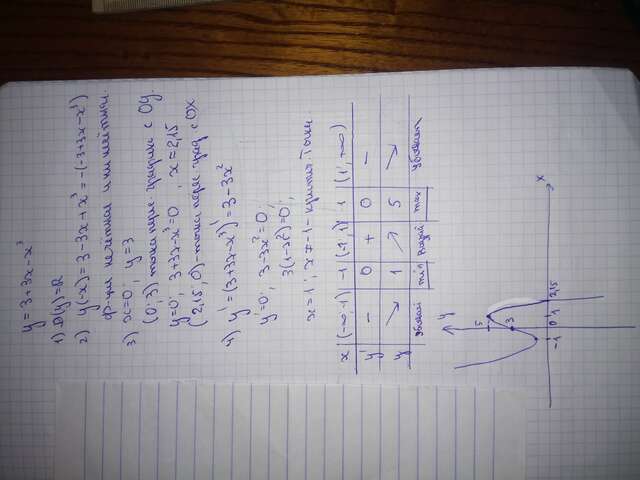 y = 3 + 3x - x³
1) D(y) = R
2) y(-x) = 3 - 3x + x³ = -(-3+3x-x³)
ф-ция нечётная и ни
3) x=0; y=3
(0; 3) точка перес. графика с OY.
y=0; 3+3x-x³=0, x≈2,15
(2,15; 0) - точка перес. граф. с OX
4) y' = (3+3x-x³)' = 3-3x²
y'=0; 3-3x²=0;
3(1-x²)=0;
x=1; x≠-1 - критич. точки
x (-∞; -1) -1 (-1; 1) 1 (1; +∞)
y' - 0 + 0 -
y ↘ 1 ↗ 5 ↘
убывай min возрай max убывает
y
5
3
x
-1 0 1 2,15